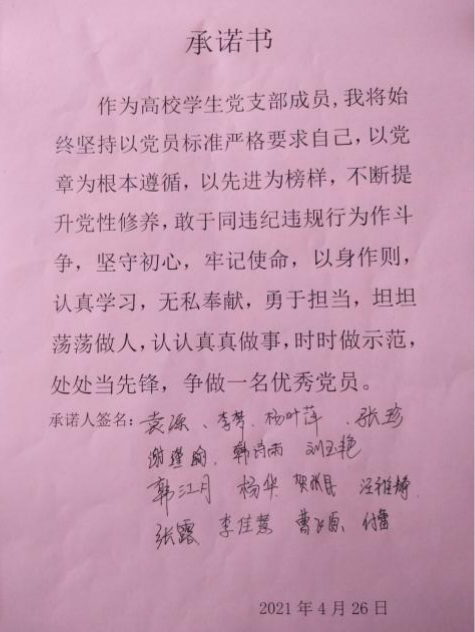 承诺书
作为高校学生党支部成员,我将始
终坚持以党员标准严格要求自己，以党
章为根本遵循，以先进为榜样，不断提
升党性修养，敢于同违纪违规行为作斗
争，坚守初心，牢记使命，以身作则，
认真学习，无私奉献，勇于担当，坦坦
荡荡做人，认认真真做事，时时做示范，
处处当先锋，争做一名优秀党员。
承诺人签名：袁源、李梦、杨叶萍、张珍
谢瑾瑜 韩雨 刘玉艳
韩江月 杨华 汪雅婷
张露 李佳慧 曹 付雷
2021 年 4 月 26 日